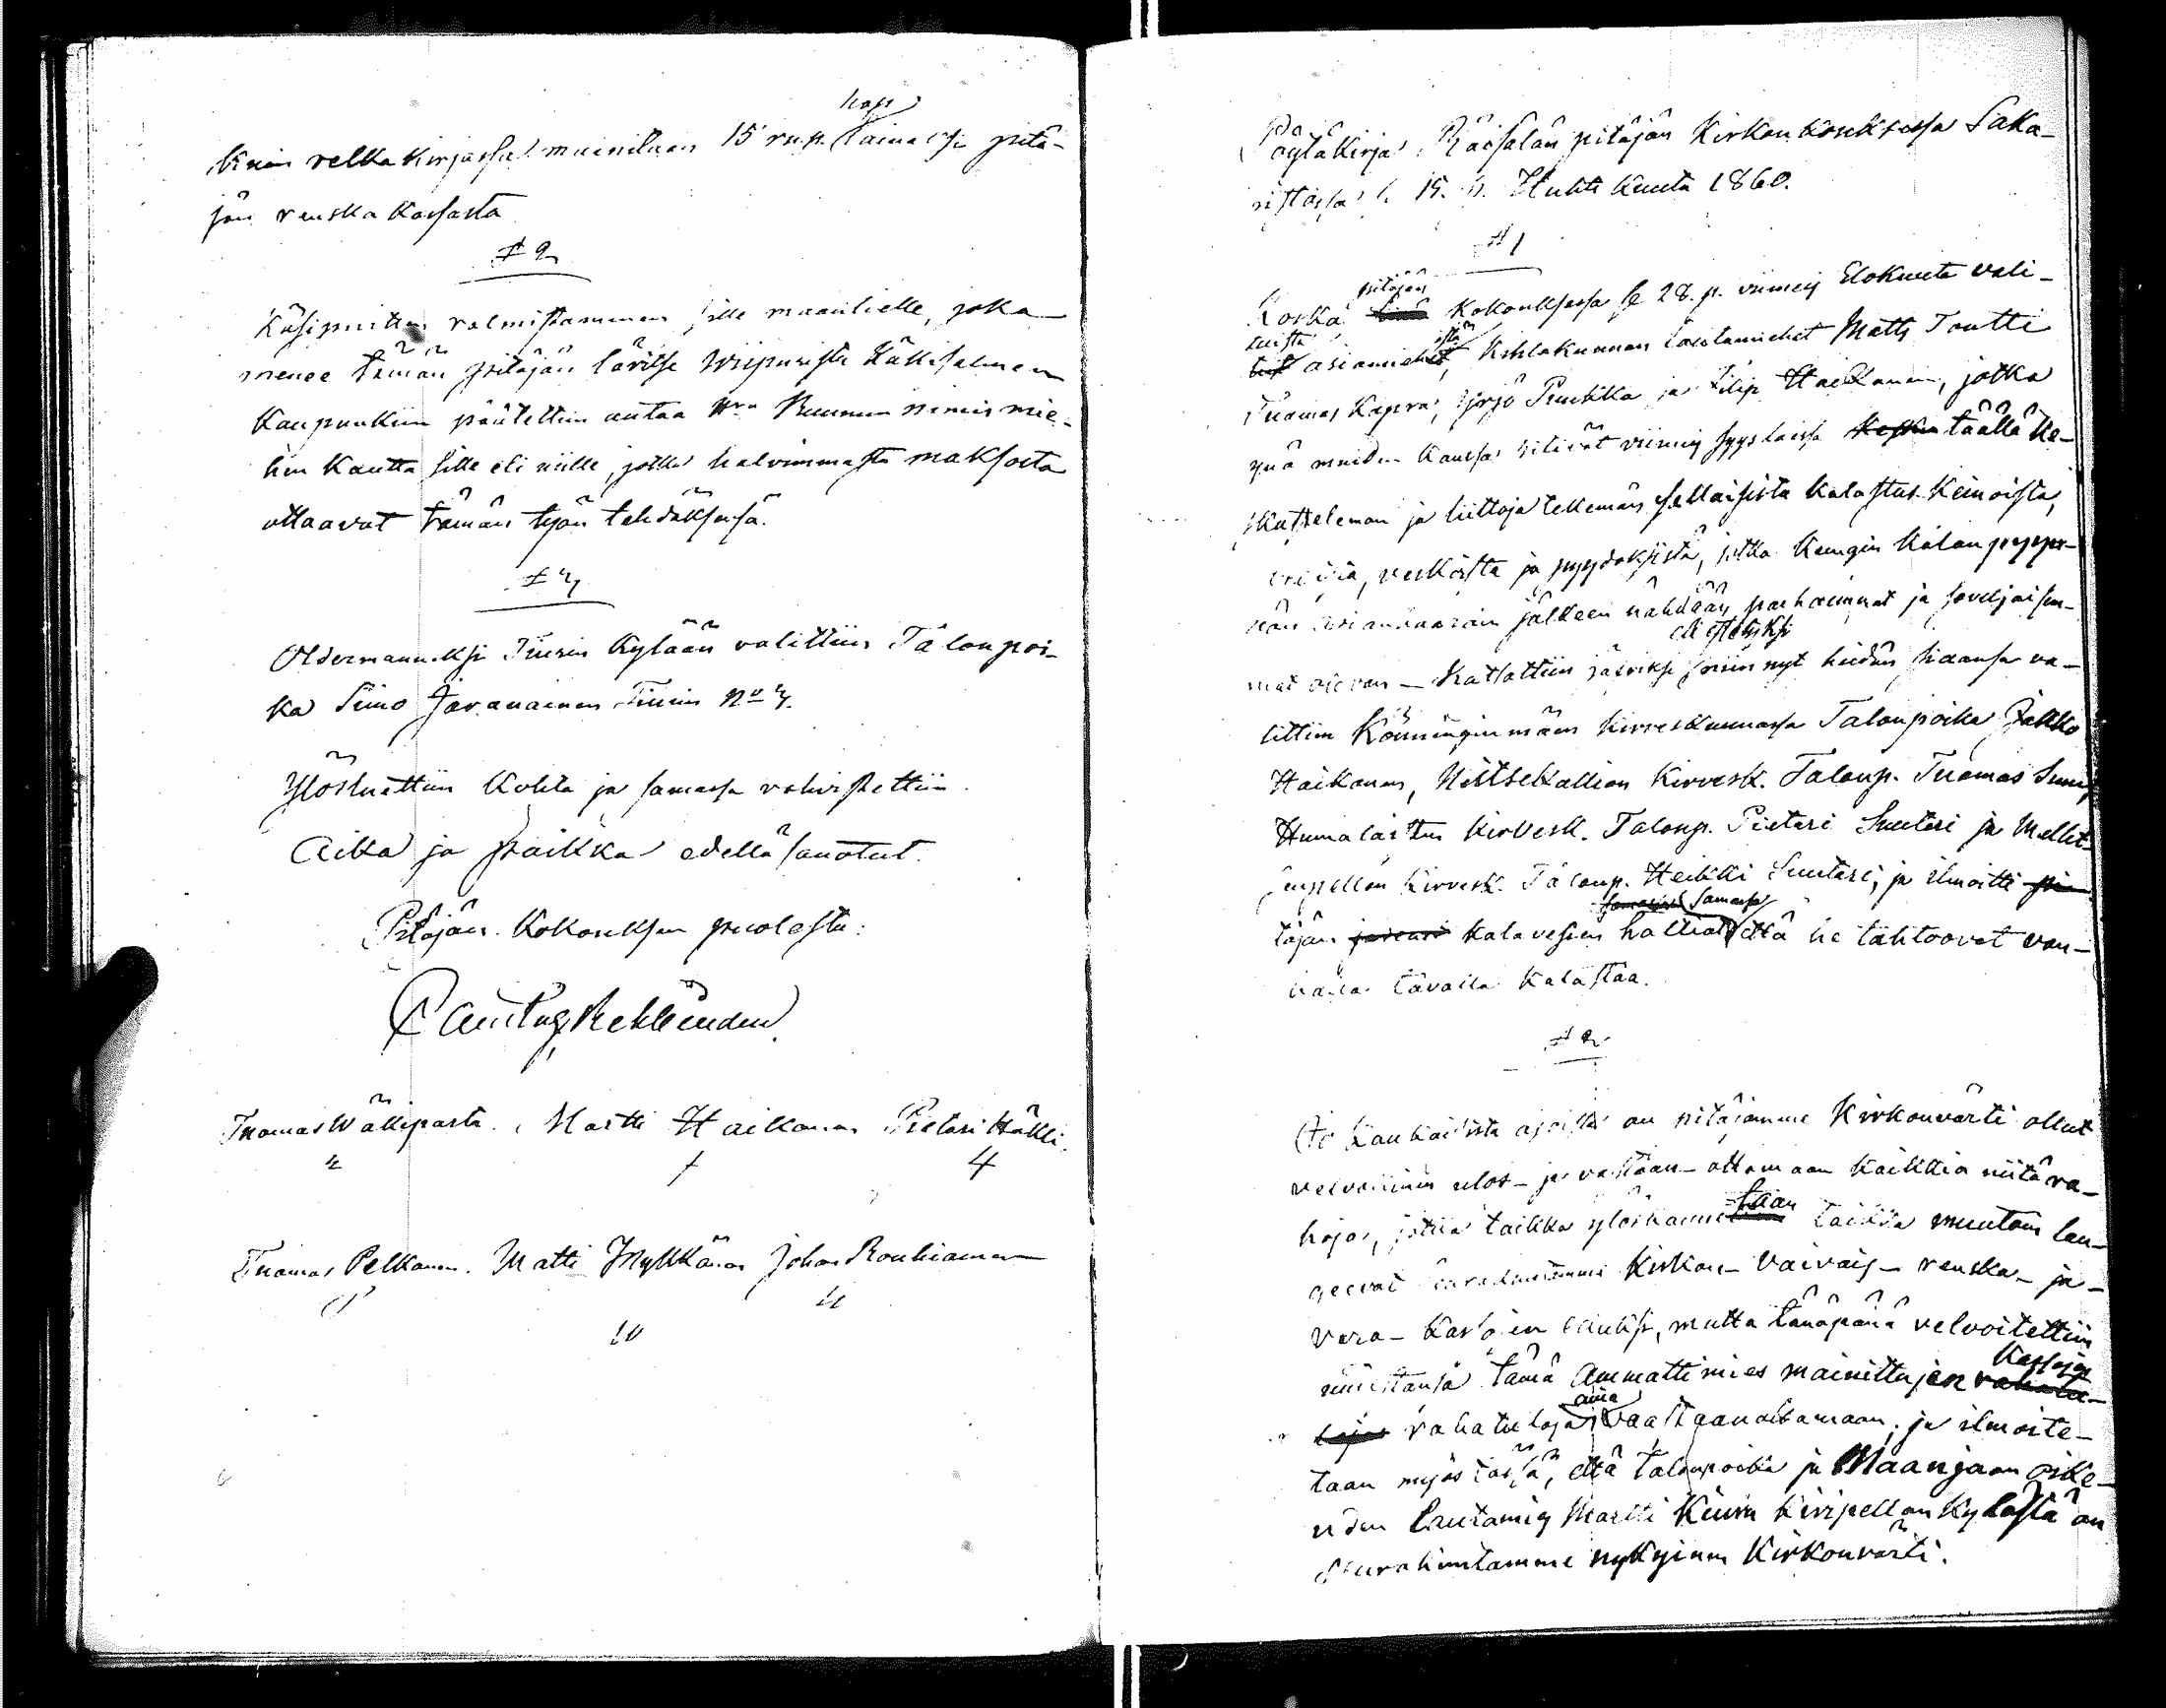 hop
kuin velka kirjassa mainitaan 15 rup. lainaksi pitä-
jän renska kassasta
§ 2
Käsipuitten valmistaminen sille maantielle, joka
menee tämän pitäjän lävitse Wiipurista Käkisalmen
Kaupunkiin päätettiin antaa Hra Ruunun nimismie-
hen kautta sille eli niille, jotka halvimmasta maksosta
ottaavat tämän työn tehdäksensä.
§ 3
Oldermanniksi Tiurin kylään valittiin Talonpoi-
ka Simo Javanainen Tiurin No 3.
Ylösluettiin kohta ja samassa vahvistettiin.
Aika ja paikka edellä sanotut.
Pitäjän Kokouksen puolesta:
Tuomas Wäkiparta. Martti Haikonen Pietari Häkli.
Tuomas Pelkonen. Matti Mykkänen Johan Rouhiainen
Pöytäkirja Räisälän pitäjän Kirkon kouksessa Saka-
ristossa 15. p. Huhti Kuuta 1860.
§ 1
pitäjän
Koska kokouksessa se 28. p. viimeis Elokuuta vali-
tuista
asiamiehistä, Kihlakunnan lautamiehet Matts Toutti
Tuomas Kapra, Yrjö Puukka ja Filip Haikonen, jotka
ynä muiden kanssa pitivät viimeis syys täällä ke-
skustteleman ja liittoja tekemän sellaisista kalastus-keinoista,
verkoista ja pyydyksistä, jotka kungin kalan pyyn-
nön jälkeen nähdään parhaimmat ja soveljaisim-
eli estetyksi
mat olevan — katsottiin niin nyt heidän siaansa va-
littiin Könninginmäen kirveskunnassa Talonpoika Jakko
Haikonen, Niittekallion kirvesk. Talonp. Tuomas
Humalaisten kirvesk. Talonp. Pietari Suutari ja Mellit-
senpellon kirvesk. Talonp. Heikki Suutari, ja ilmoitti
samassa
täjän kalavesien halliat että he tahtoovat van-
halla tavalla kalastaa.
§ 2
Jo kaukaisista ajoista on pitäjämme Kirkonvärti ollut
velvollinen ulos- ja vastaan-ottamaan kaikkia niitä ra-
hoja, joita taikka ylöskannetaan taikka muutoin lan-
geevat seurakuntamme Kirkon- Vaivais- renska- ja
vara- kassoien hyväksi, mutta tänäpänä velvoitettiin
Kassojen
tämä Ammattimies mainittujen
aina
rahatuloja vaastaanottamaan, ja ilmoite-
taan myös tässä, että talonpoika ja Maanjaon oike-
uden Lautamies Martti Kiuru Kivipellon Kylästä on
Seurakuntamme nykyinen Kirkonvärti.